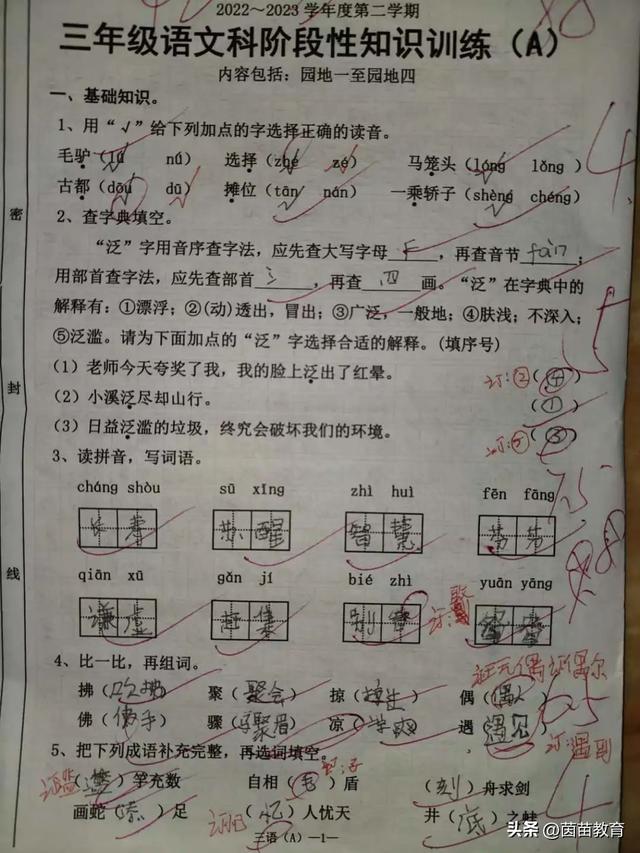 2022～2023学年度第二学期
三年级语文科阶段性知识训练（A）
内容包括：园地一至园地四
一、基础知识。
1、用“√”给下列加点的字选择正确的读音。
毛驴（lú nú） 选择（zhé zé） 马笼头（lóng lǒng）
古都（dōu dū） 摊位（tān nán） 一乘轿子（shèng chéng）
2、查字典填空。
“泛”字用音序查字法，应先查大写字母 F ，再查音节 fàn ；
用部首查字法，应先查部首 氵 ，再查 四 画。“泛”在字典中的
解释有：①漂浮；②(动)透出，冒出；③广泛，一般地；④肤浅；不深入；
⑤泛滥。请为下面加点的“泛”字选择合适的解释。(填序号)
（1）老师今天夸奖了我，我的脸上泛出了红晕。 订:②（④）
（2）小溪泛尽却山行。 （①）
（3）日益泛滥的垃圾，终究会破坏我们的环境。 订:⑤（③）
3、读拼音，写词语。
cháng shòu sū xǐng zhì huì fēn fāng
长寿 苏醒 智慧 芬芳
qiān xū gǎn jí bié zhì yuān yāng
谦虚 赶集 别 鸳鸯
4、比一比，再组词。
拂（吹拂） 聚（聚会） 掠（掠过） 偶（偶人）
佛（佛手） 骤（） 凉（） 遇（遇见）
订遇到
5、把下列成语补充完整，再选词填空。
订滥（）竽充数 自相（矛）盾 （刻）舟求剑
画蛇（添）足 订杞（忆）人忧天 井（底）之蛙
三语（A）—1—
头条 @茵苗教育